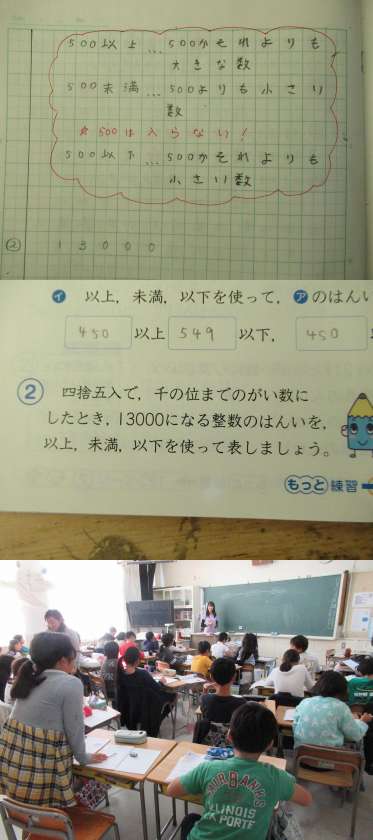 500以上…500かそれよりも
大きな数
500未満…500よりも小さい
数
☆500は入らない！
500以下…500かそれよりも
小さい数
② 13000
イ 以上，未満，以下を使って，アのはんい
450 以上 549 以下， 450 以
② 四捨五入で，千の位までのがい数に
したとき，13000になる整数のはんいを，
以上，未満，以下を使って表しましょう。
もっと練習
URBANKS
ILINOIS
EX PORTE